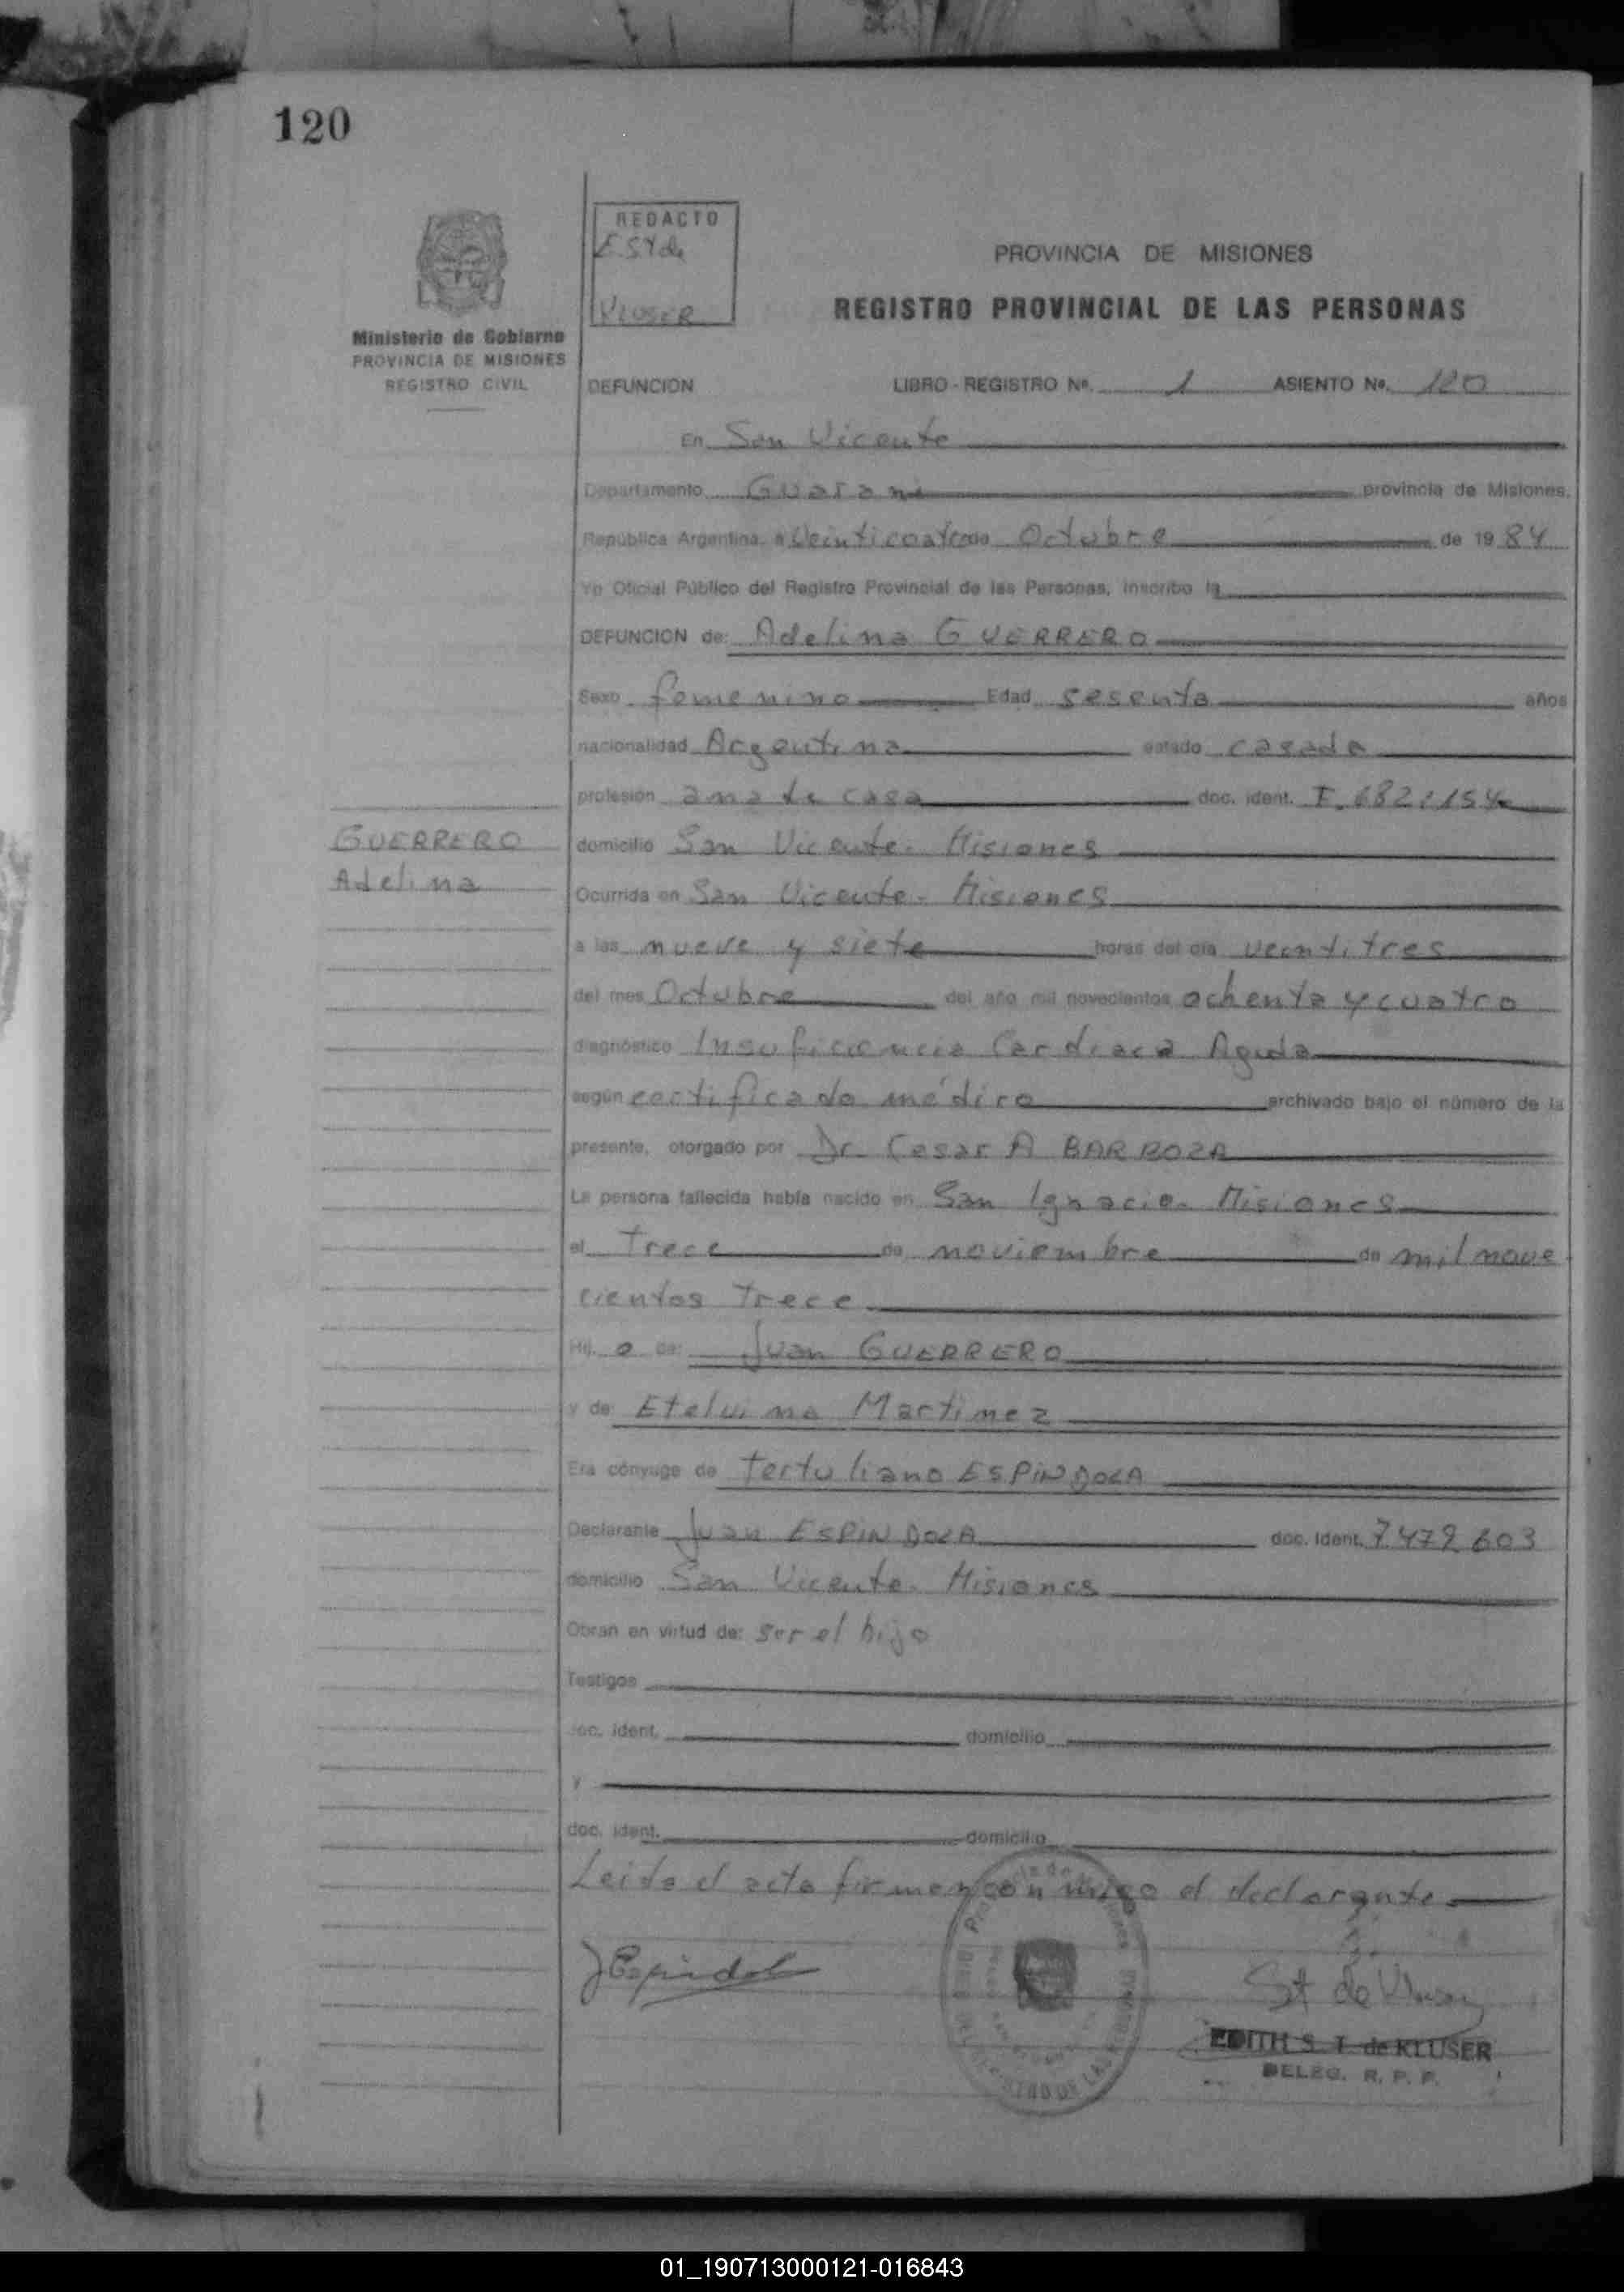 120
REDACTO
E.S.T de
KLUSER
PROVINCIA DE MISIONES
REGISTRO PROVINCIAL DE LAS PERSONAS
Ministerio de Gobierno
PROVINCIA DE MISIONES
REGISTRO CIVIL
DEFUNCION LIBRO - REGISTRO Nº. 1 ASIENTO Nº. 120
En San Vicente
Departamento Guarani provincia de Misiones.
República Argentina, a Veinticuatro de Octubre de 1984
Yo Oficial Público del Registro Provincial de las Personas, inscribo la
DEFUNCION de: Adelina GUERRERO
Sexo femenino Edad sesenta años
nacionalidad Argentina estado casada
profesión ama de casa doc. ident. F. 682.154
GUERRERO
Adelina
domicilio San Vicente - Misiones
Ocurrida en San Vicente - Misiones
a las nueve y siete horas del día veintitres
del mes Octubre del año mil novecientos ochenta y cuatro
diagnóstico Insuficiencia Cardiaca Aguda
según certificado médico archivado bajo el número de la
presente, otorgado por Dr. Cesar A BARBOZA
La persona fallecida había nacido en San Ignacio - Misiones
el Trece de noviembre de mil nove
cientos Trece
Hij a de: Juan GUERRERO
y de Etelvina Martinez
Era cónyuge de Tertuliano ESPINDOLA
Declarante Juan ESPINDOLA doc. Ident. 7.479.603
domicilio San Vicente - Misiones
Obran en virtud de: ser el hijo
Testigos
doc. ident. domicilio
y
doc. ident. domicilio
Leida el acta firma conmigo el declarante
JEspindola
EDITH S. T. de KLUSER
DELEG. R. P. P.
01_190713000121-016843